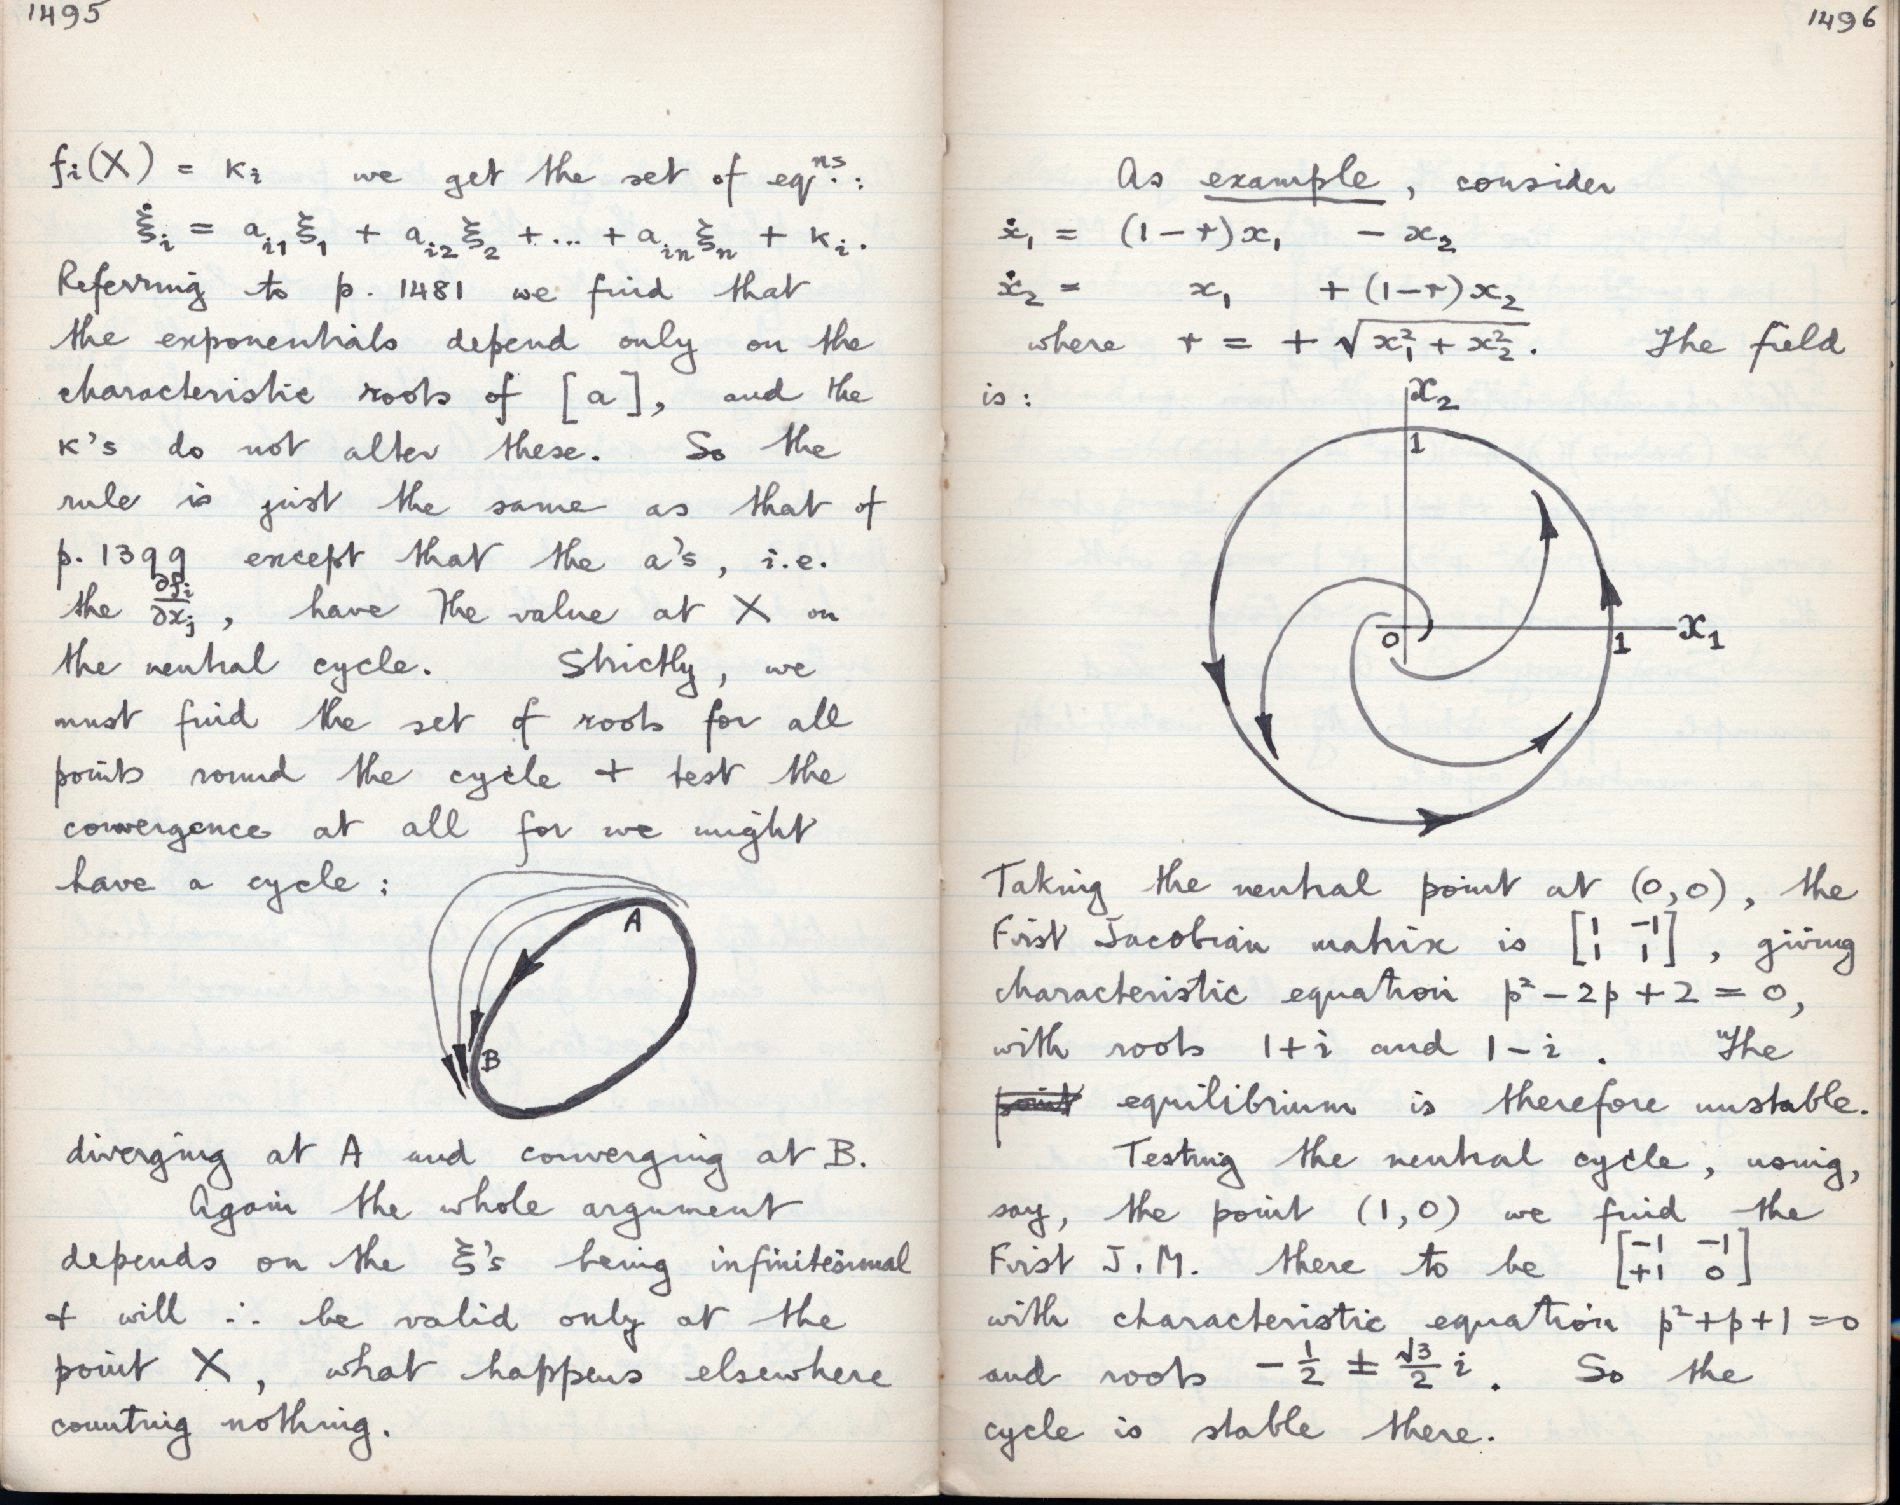 1495
fi(X) = κi we get the set of eqns:
ξ̇i = ai1ξ1 + ai2ξ2 + ... + ainξn + κi.
Referring to p. 1481 we find that
the exponentials depend only on the
characteristic roots of [a], and the
κ's do not alter these. So the
rule is just the same as that of
p. 1399 except that the a's, i.e.
the ∂fi/∂xj, have the value at X on
the neutral cycle. Strictly, we
must find the set of roots for all
points round the cycle + test the
convergence at all for we might
have a cycle:
A
B
diverging at A and converging at B.
Again the whole argument
depends on the ξ's being infinitesimal
+ will ∴ be valid only at the
point X, what happens elsewhere
counting nothing.
1496
As example, consider
ẋ1 = (1-r)x1 - x2
ẋ2 = x1 + (1-r)x2
where r = + √x1² + x2². The field
is:
x2
1
0
1
x1
Taking the neutral point at (0,0), the
First Jacobian matrix is [1 -1
1 1], giving
characteristic equation p² - 2p + 2 = 0,
with roots 1+i and 1-i. The
point equilibrium is therefore unstable.
Testing the neutral cycle, using,
say, the point (1,0) we find the
First J.M. there to be [-1 -1
+1 0]
with characteristic equation p²+p+1=0
and roots -1/2 ± √3/2 i. So the
cycle is stable there.